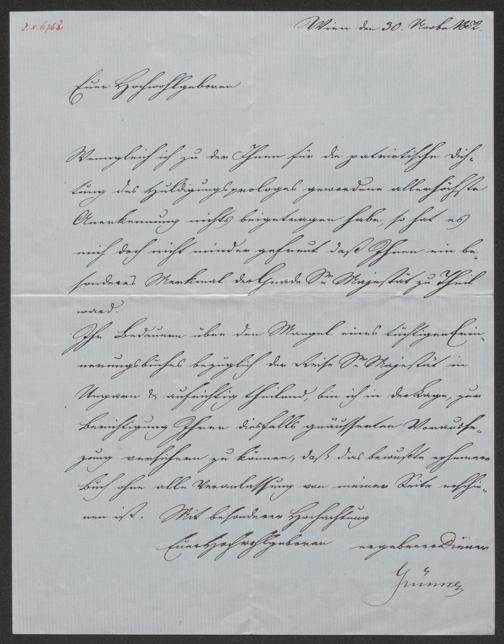 Wien den 30. Novbr 1852.
Euer Hochwohlgeboren
Wenngleich ich zu der Ihnen für die patriotische Dich-
tung des Huldigungsprologes gewordene allerhöchste
Anerkennung nichts beigetragen habe, so hat es
mich doch nicht minder gefreut daß Ihnen ein be-
sonderes Merkmal der Gnade Sr Majestät zu Theil
ward.
Ihr Bedauern über den Mangel eines tüchtigen Erin-
nerungsbuches bezüglich der Reise Sr Majestät in
Ungarn & aufrichtig theilend, bin ich in der Lage, zur
Berichtigung Ihrer diesfalls geäusserten Voraus-
zung versichern zu können, daß das bewußte
buch ohne alle Veranlassung von meiner Seite erschie-
nen ist. Mit besonderer Hochachtung
Euer Hochwohlgeboren ergebener Diener
Grünne